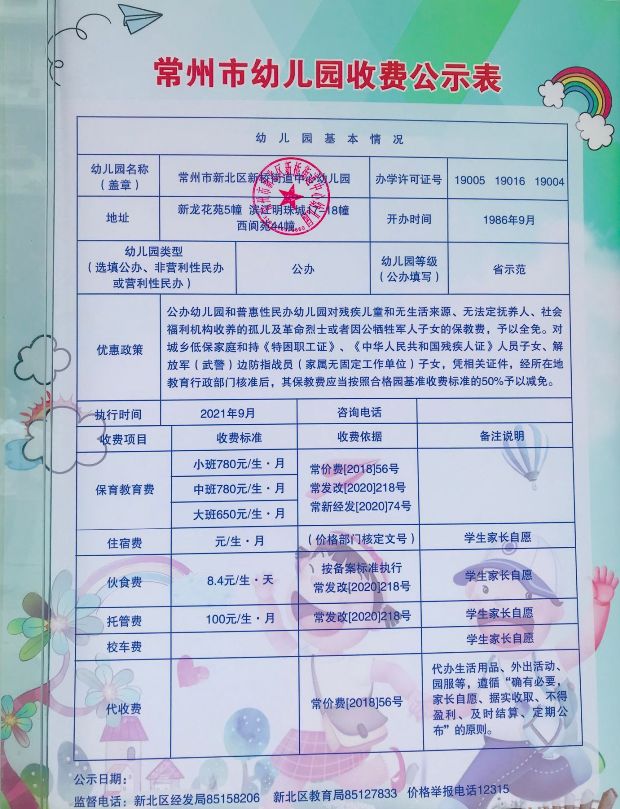 常州市幼儿园收费公示表
幼儿园基本情况
幼儿园名称
（盖章）
常州市新北区新桥街道中心幼儿园
办学许可证号
19005 19016 19004
地址
新龙花苑5幢 滨江明珠城17-18幢
西阆苑44幢
开办时间
1986年9月
幼儿园类型
（选填公办、非营利性民办
或营利性民办）
公办
幼儿园等级
（公办填写）
省示范
优惠政策
公办幼儿园和普惠性民办幼儿园对残疾儿童和无生活来源、无法定抚养人、社会
福利机构收养的孤儿及革命烈士或者因公牺牲军人子女的保教费，予以全免。对
城乡低保家庭和持《特困职工证》、《中华人民共和国残疾人证》人员子女、解
放军（武警）边防指战员（家属无固定工作单位）子女，凭相关证件，经所在地
教育行政部门核准后，其保教费应当按照合格园基准收费标准的50%予以减免。
执行时间
2021年9月
咨询电话
收费项目
收费标准
收费依据
备注说明
保育教育费
小班780元/生·月
中班780元/生·月
大班650元/生·月
常价费[2018]56号
常发改[2020]218号
常新经发[2020]74号
住宿费
元/生·月
（价格部门核定文号）
学生家长自愿
伙食费
8.4元/生·天
按备案标准执行
常发改[2020]218号
学生家长自愿
托管费
100元/生·月
常发改[2020]218号
学生家长自愿
校车费
学生家长自愿
代收费
常价费[2018]56号
代办生活用品、外出活动、
园服等，遵循“确有必要，
家长自愿、据实收取、不得
盈利、及时结算、定期公
布”的原则。
公示日期：
监督电话：新北区经发局85158206 新北区教育局85127833 价格举报电话12315